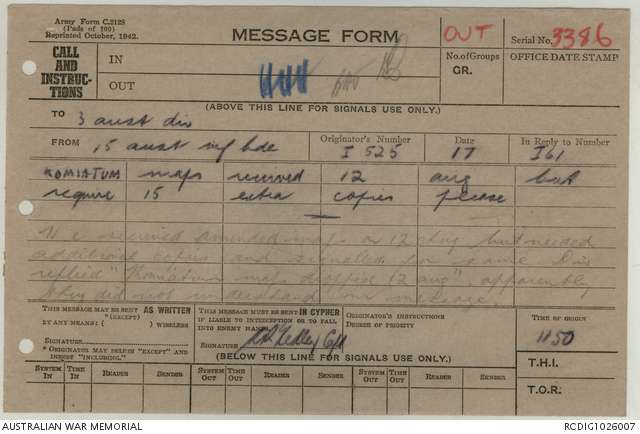 Army Form C.2128
(Pads of 100)
Reprinted October, 1942.
MESSAGE FORM
OUT
Serial No. 3386
CALL AND INSTRUC-TIONS
IN
OUT
No. of Groups
GR.
OFFICE DATE STAMP
(ABOVE THIS LINE FOR SIGNALS USE ONLY.)
TO 3 aust div
FROM 15 aust inf bde
Originator's Number I 525
Date 17
In Reply to Number I61
KOMIATUM maps received 12 aug but
require 15 extra copies please
We received amended map on 12 Aug but needed
additional copies and signalled for same
replied "Komiatum map dropped 12 aug" apparently
they did not our message.
THIS MESSAGE MAY BE SENT AS WRITTEN
(EXCEPT)
BY ANY MEANS: ( ) WIRELESS
SIGNATURE
* ORIGINATOR MAY DELETE "EXCEPT" AND INSERT "INCLUDING."
THIS MESSAGE MUST BE SENT IN CYPHER
IF LIABLE TO INTERCEPTION OR TO FALL INTO ENEMY HANDS.
SIGNATURE
ORIGINATOR'S INSTRUCTIONS
DEGREE OF PRIORITY
TIME OF ORIGIN
1150
(BELOW THIS LINE FOR SIGNALS USE ONLY.)
T.H.I.
T.O.R.
SYSTEM IN
TIME IN
READER
SENDER
SYSTEM OUT
TIME OUT
READER
SENDER
SYSTEM OUT
TIME OUT
READER
SENDER
AUSTRALIAN WAR MEMORIAL
RCDIG1026007